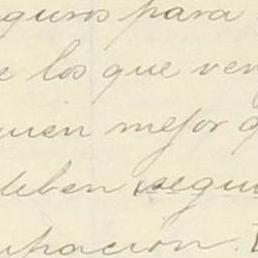 guros para
e los que ven
uen mejor q
deben segui
upación.